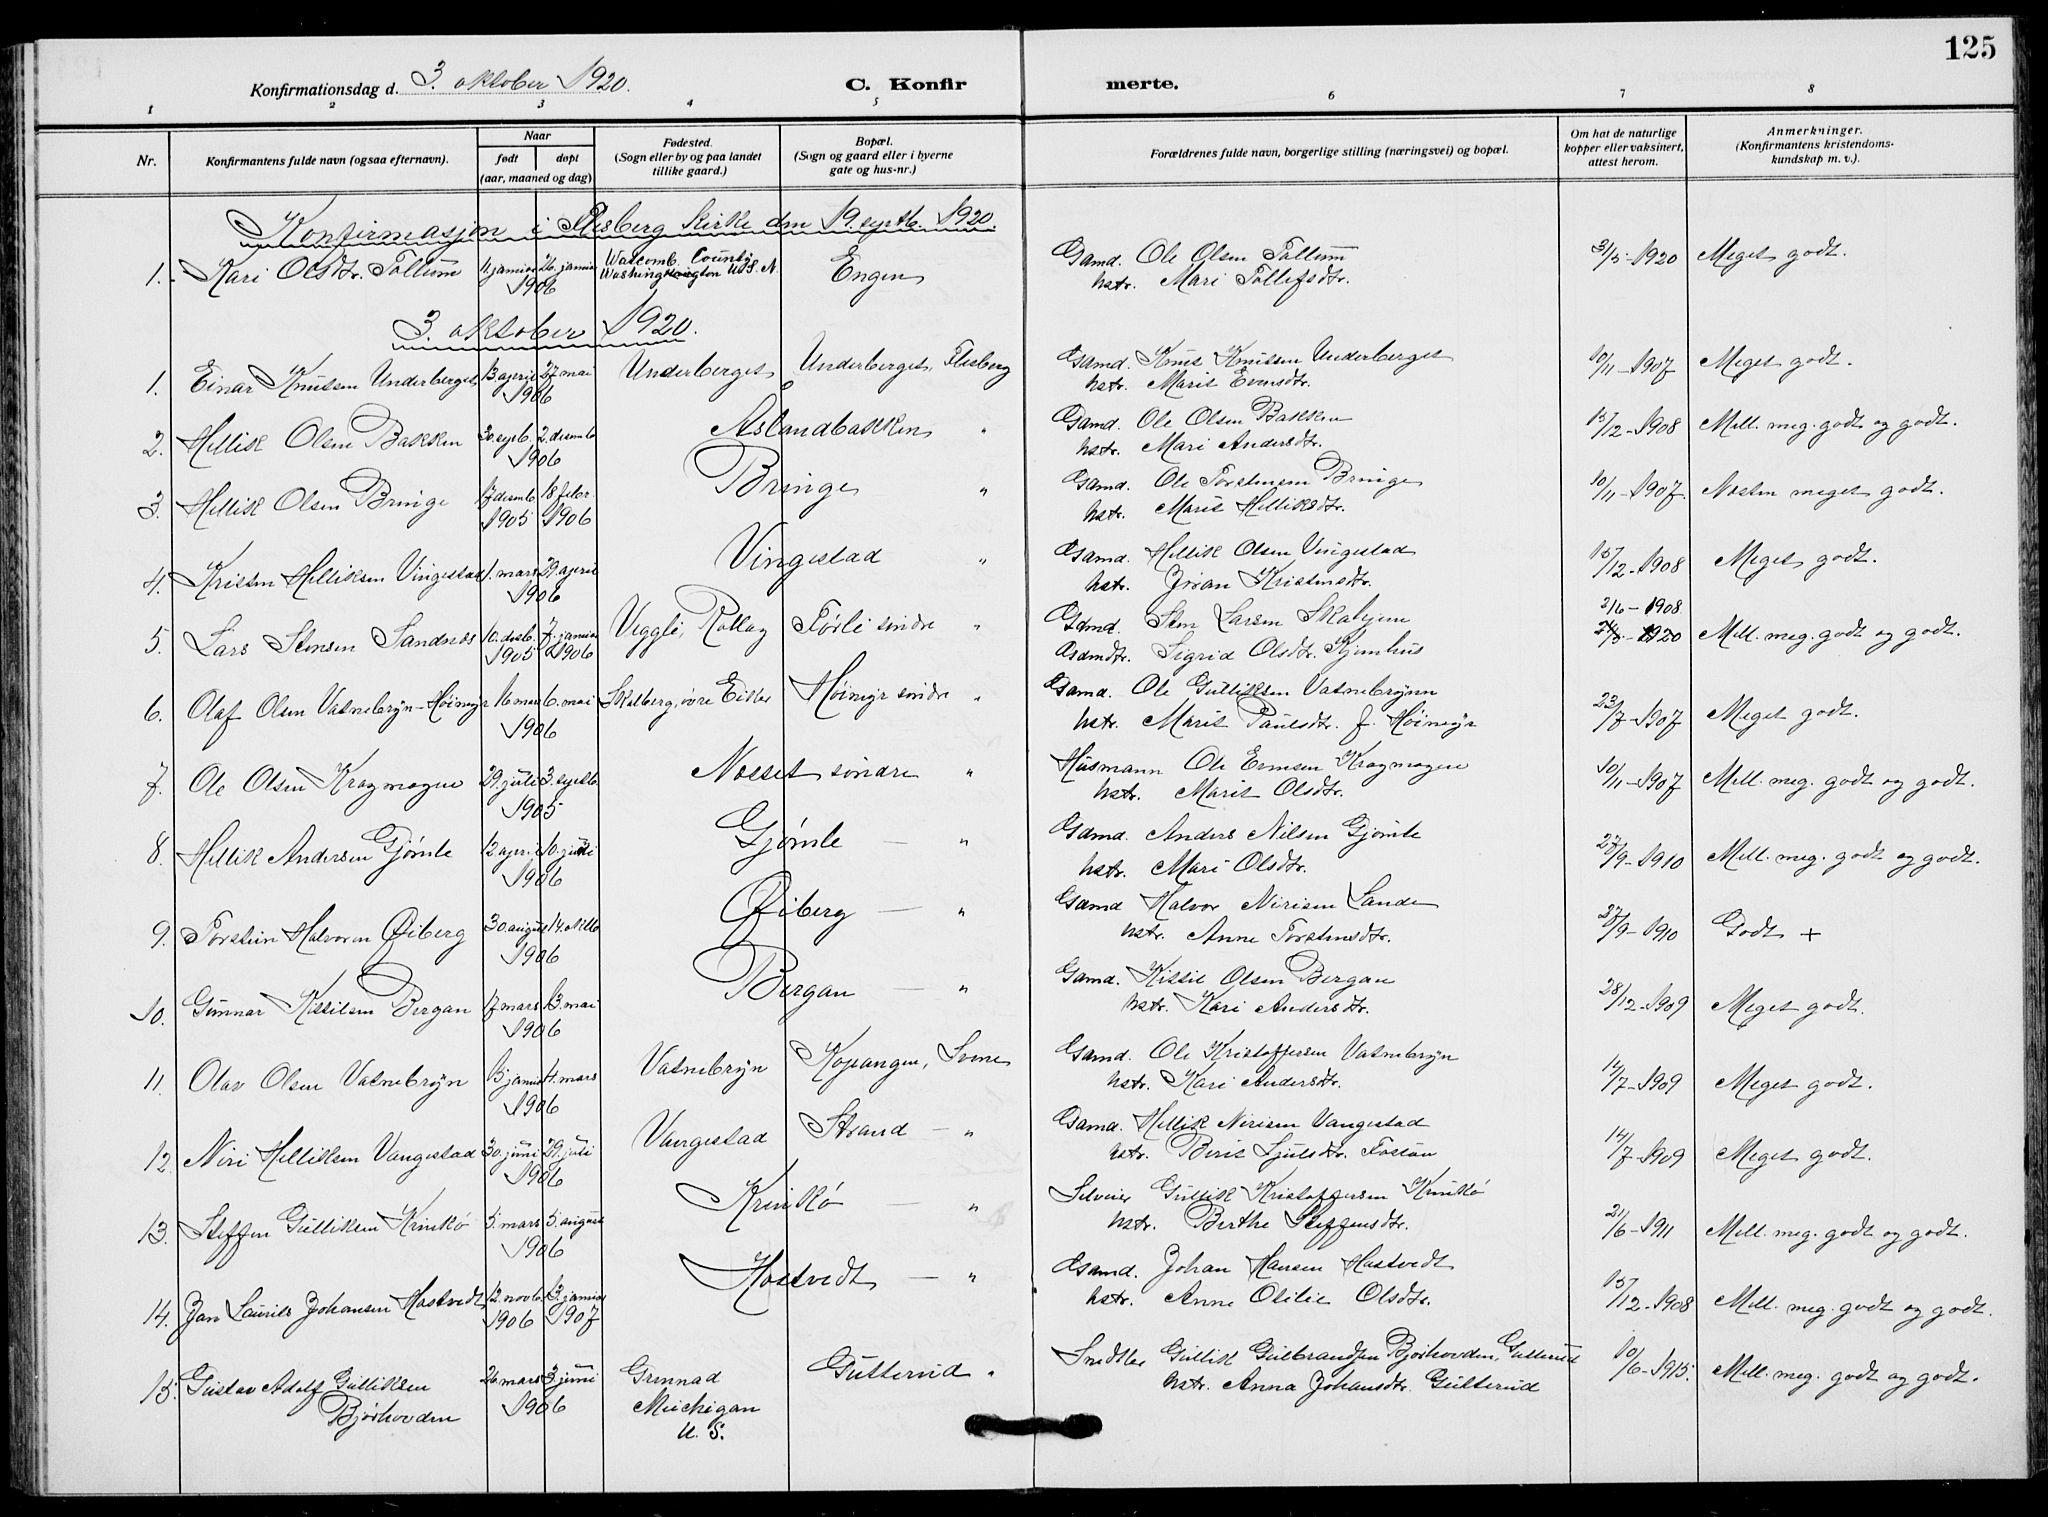 125
Konfirmationsdag d. 3. oktober 1920.
C. Konfirmerte.
1 2 3 4 5 6 7 8
Nr.
Konfirmantens fulde navn (ogsaa efternavn).
Naar
født
døpt
(aar, maaned og dag)
Fødested.
(Sogn eller by og paa landet
tillike gaard.)
Bopæl.
(Sogn og gaard eller i byerne
gate og hus-nr.)
Forældrenes fulde navn, borgerlige stilling (næringsvei) og bopæl.
Om hat de naturlige
kopper eller vaksinert,
attest herom.
Anmerkninger.
(Konfirmantens kristendoms-
kundskap m. v.).
Konfirmasjon i Flesberg kirke den 19. septb. 1920.
1. Kari Olsdtr. Tollum 11. januar 26. januar 1906 Watcomb. County Washington U.S.N. Engen Gamd. Ole Olsen Tollum hstr. Mari Tollefsdtr. 3/5-1920 Meget godt.
3. oktober 1920.
1. Einar Knutsen Underberget 13 april 27 mai 1906 Underberget Underberget, Flesberg Gamd. Knut Knutsen Underberget hstr. Marit Evensdtr. 10/11-1907 Meget godt.
2. Hellik Olsen Bakken 30. septb. 2. desemb 1906 Aslandbakken " Gamd. Ole Olsen Bakken hstr. Mari Andersdtr. 15/12-1908 Mell. meg. godt og godt.
3. Hellik Olsen Bringe 17 desemb 1905 18 febr. 1906 Bringe " Gamd. Ole Torstensen Bringe hstr. Marit Helliksdtr. 10/11-1907. Nesten meget godt.
4. Kristen Helliksen Vingestad 1. mars 29. april 1906 Vingestad " Gamd. Hellik Olsen Vingestad hstr. Jøran Kristensdtr. 15/12-1908 Meget godt.
5. Lars Stensen Sandnes 10. desb. 1905 7. januar 1906 Veggli, Rollag Førli søndre " Gdmd. Sten Larsen Skabyen Gdmdtr. Sigrid Olsdtr. Kjemhus 2/6-1908 1920 Mell. meg. godt og godt.
6. Olaf Olsen Vatnebryn-Høimyr 16 mars 6. mai 1906 Skalberg, øvre Eiker Høimyr søndre " Gamd. Ole Gulliksen Vatnebrynn hstr. Marit Paulsdtr. f. Høimyr 23/7-1907 Meget godt.
7. Ole Olsen Kragmogen 29. juli 3. septb. 1905 Næset søndre " Husmann Ole Evensen Kragmogen hstr. Marit Olsdtr. 10/11-1907 Mell. meg. godt og godt.
8. Hellik Andersen Gjømle 12 april 10. juni 1906 Gjømle — " Gdmd. Anders Nilsen Gjømle hstr. Mari Olsdtr. 27/9-1910 Mell. meg. godt og godt.
9. Torstein Halvorsen Øiberg 30. august 14. oktb 1906 Øiberg — " Gdmd Halvor Nirisen Lande hstr. Anne Torstensdtr. 27/9-1910 Godt +
10. Gunnar Kittilsen Bergan 17 mars 13. mai 1906 Bergan — " Gamd. Kittil Olsen Bergan hstr. Kari Andersdtr. 28/12-1909 Meget godt.
11. Olav Olsen Vatnebryn 15 januar 4. mars 1906 Vatnebryn Kopangen, Svene Gamd. Ole Kristoffersen Vatnebryn hstr. Kari Andersdtr. 14/7-1909 Meget godt.
12. Niri Helliksen Vangestad 30. juni 29. juli 1906 Vangestad Strand — " Gamd. Hellik Nirisen Vangestad hstr. Birit Sjulsdtr. Fossan 14/7-1909 Meget godt.
13. Steffen Gulliksen Krinkø 5. mars 5. august 1906 Krinkø — " Selveier Gullik Kristoffersen Krinkø hstr. Berthe Steffensdtr. 21/6-1911 Mell. meg. godt og godt.
14. Jan Laurits Johansen Hostvedt 12. novb. 1906 13. januar 1907 Hostvedt — " Gamd. Johan Hansen Hostvedt hstr. Anne Otilie Olsdtr. 15/12-1908 Mell. meg. godt og godt.
15. Gustav Adolf Gulliksen Bjørhovden 26. mars 3. juni 1906 Grennad Muichigan U. S. Gulterud " Snedker Gullik Gulbrandsen Bjørhovden, Gulterud hstr. Anna Johansdtr. Gulterud 10/6-1915. Mell. meg. godt og godt.